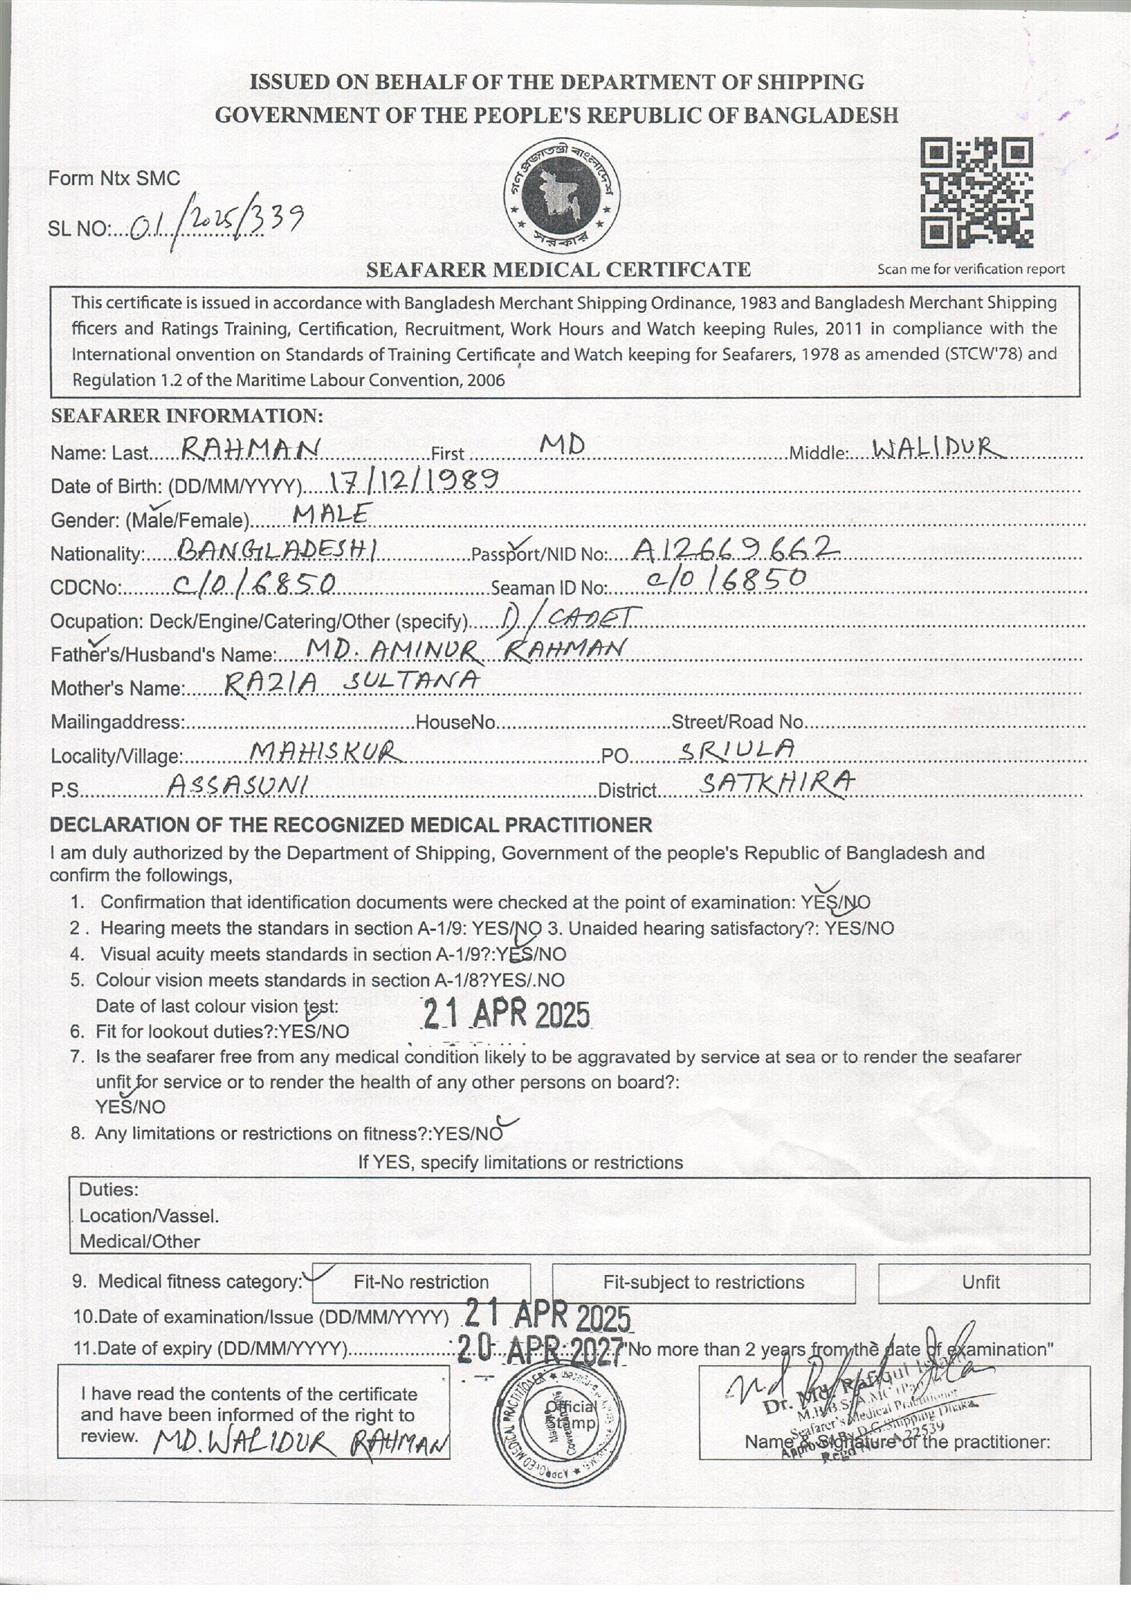 ISSUED ON BEHALF OF THE DEPARTMENT OF SHIPPING
GOVERNMENT OF THE PEOPLE'S REPUBLIC OF BANGLADESH
গণপ্রজাতন্ত্রী বাংলাদেশ
সরকার
Form Ntx SMC
SL NO:...01/2025/339
SEAFARER MEDICAL CERTIFCATE
Scan me for verification report
This certificate is issued in accordance with Bangladesh Merchant Shipping Ordinance, 1983 and Bangladesh Merchant Shipping
fficers and Ratings Training, Certification, Recruitment, Work Hours and Watch keeping Rules, 2011 in compliance with the
International onvention on Standards of Training Certificate and Watch keeping for Seafarers, 1978 as amended (STCW'78) and
Regulation 1.2 of the Maritime Labour Convention, 2006
SEAFARER INFORMATION:
Name: Last.....RAHMAN.....First.....MD.....Middle:...WALIDUR
Date of Birth: (DD/MM/YYYY)....17/12/1989
Gender: (Male/Female)......MALE
Nationality:.....BANGLADESHI.....Passport/NID No:....A12669662
CDCNo:......C/O/6850.....Seaman ID No:.....C/O/6850
Ocupation: Deck/Engine/Catering/Other (specify).....D/CADET
Father's/Husband's Name:....MD. AMINUR RAHMAN
Mother's Name:......RAZIA SULTANA
Mailingaddress:.....HouseNo.....Street/Road No.....
Locality/Village:.....MAHISKUR.....PO.....SRIULA
P.S.....ASSASUNI.....District.....SATKHIRA
DECLARATION OF THE RECOGNIZED MEDICAL PRACTITIONER
I am duly authorized by the Department of Shipping, Government of the people's Republic of Bangladesh and
confirm the followings,
1. Confirmation that identification documents were checked at the point of examination: YES/NO
2 . Hearing meets the standars in section A-1/9: YES/NO 3. Unaided hearing satisfactory?: YES/NO
4. Visual acuity meets standards in section A-1/9?:YES/NO
5. Colour vision meets standards in section A-1/8?YES/.NO
Date of last colour vision test: 21 APR 2025
6. Fit for lookout duties?:YES/NO
7. Is the seafarer free from any medical condition likely to be aggravated by service at sea or to render the seafarer
unfit for service or to render the health of any other persons on board?:
YES/NO
8. Any limitations or restrictions on fitness?:YES/NO
If YES, specify limitations or restrictions
Duties:
Location/Vassel.
Medical/Other
9. Medical fitness category: Fit-No restriction Fit-subject to restrictions Unfit
10.Date of examination/Issue (DD/MM/YYYY) 21 APR 2025
11.Date of expiry (DD/MM/YYYY).....20 APR 2027 "No more than 2 years from the date of examination"
I have read the contents of the certificate
and have been informed of the right to
review. MD. WALIDUR RAHMAN
Official
Stamp
Dr. Md. Rafiqul Islam
Seafarer's Medical Practitioner
Approved By D.G. Shipping Dhaka
Regd No. A 22539
Name & Signature of the practitioner: